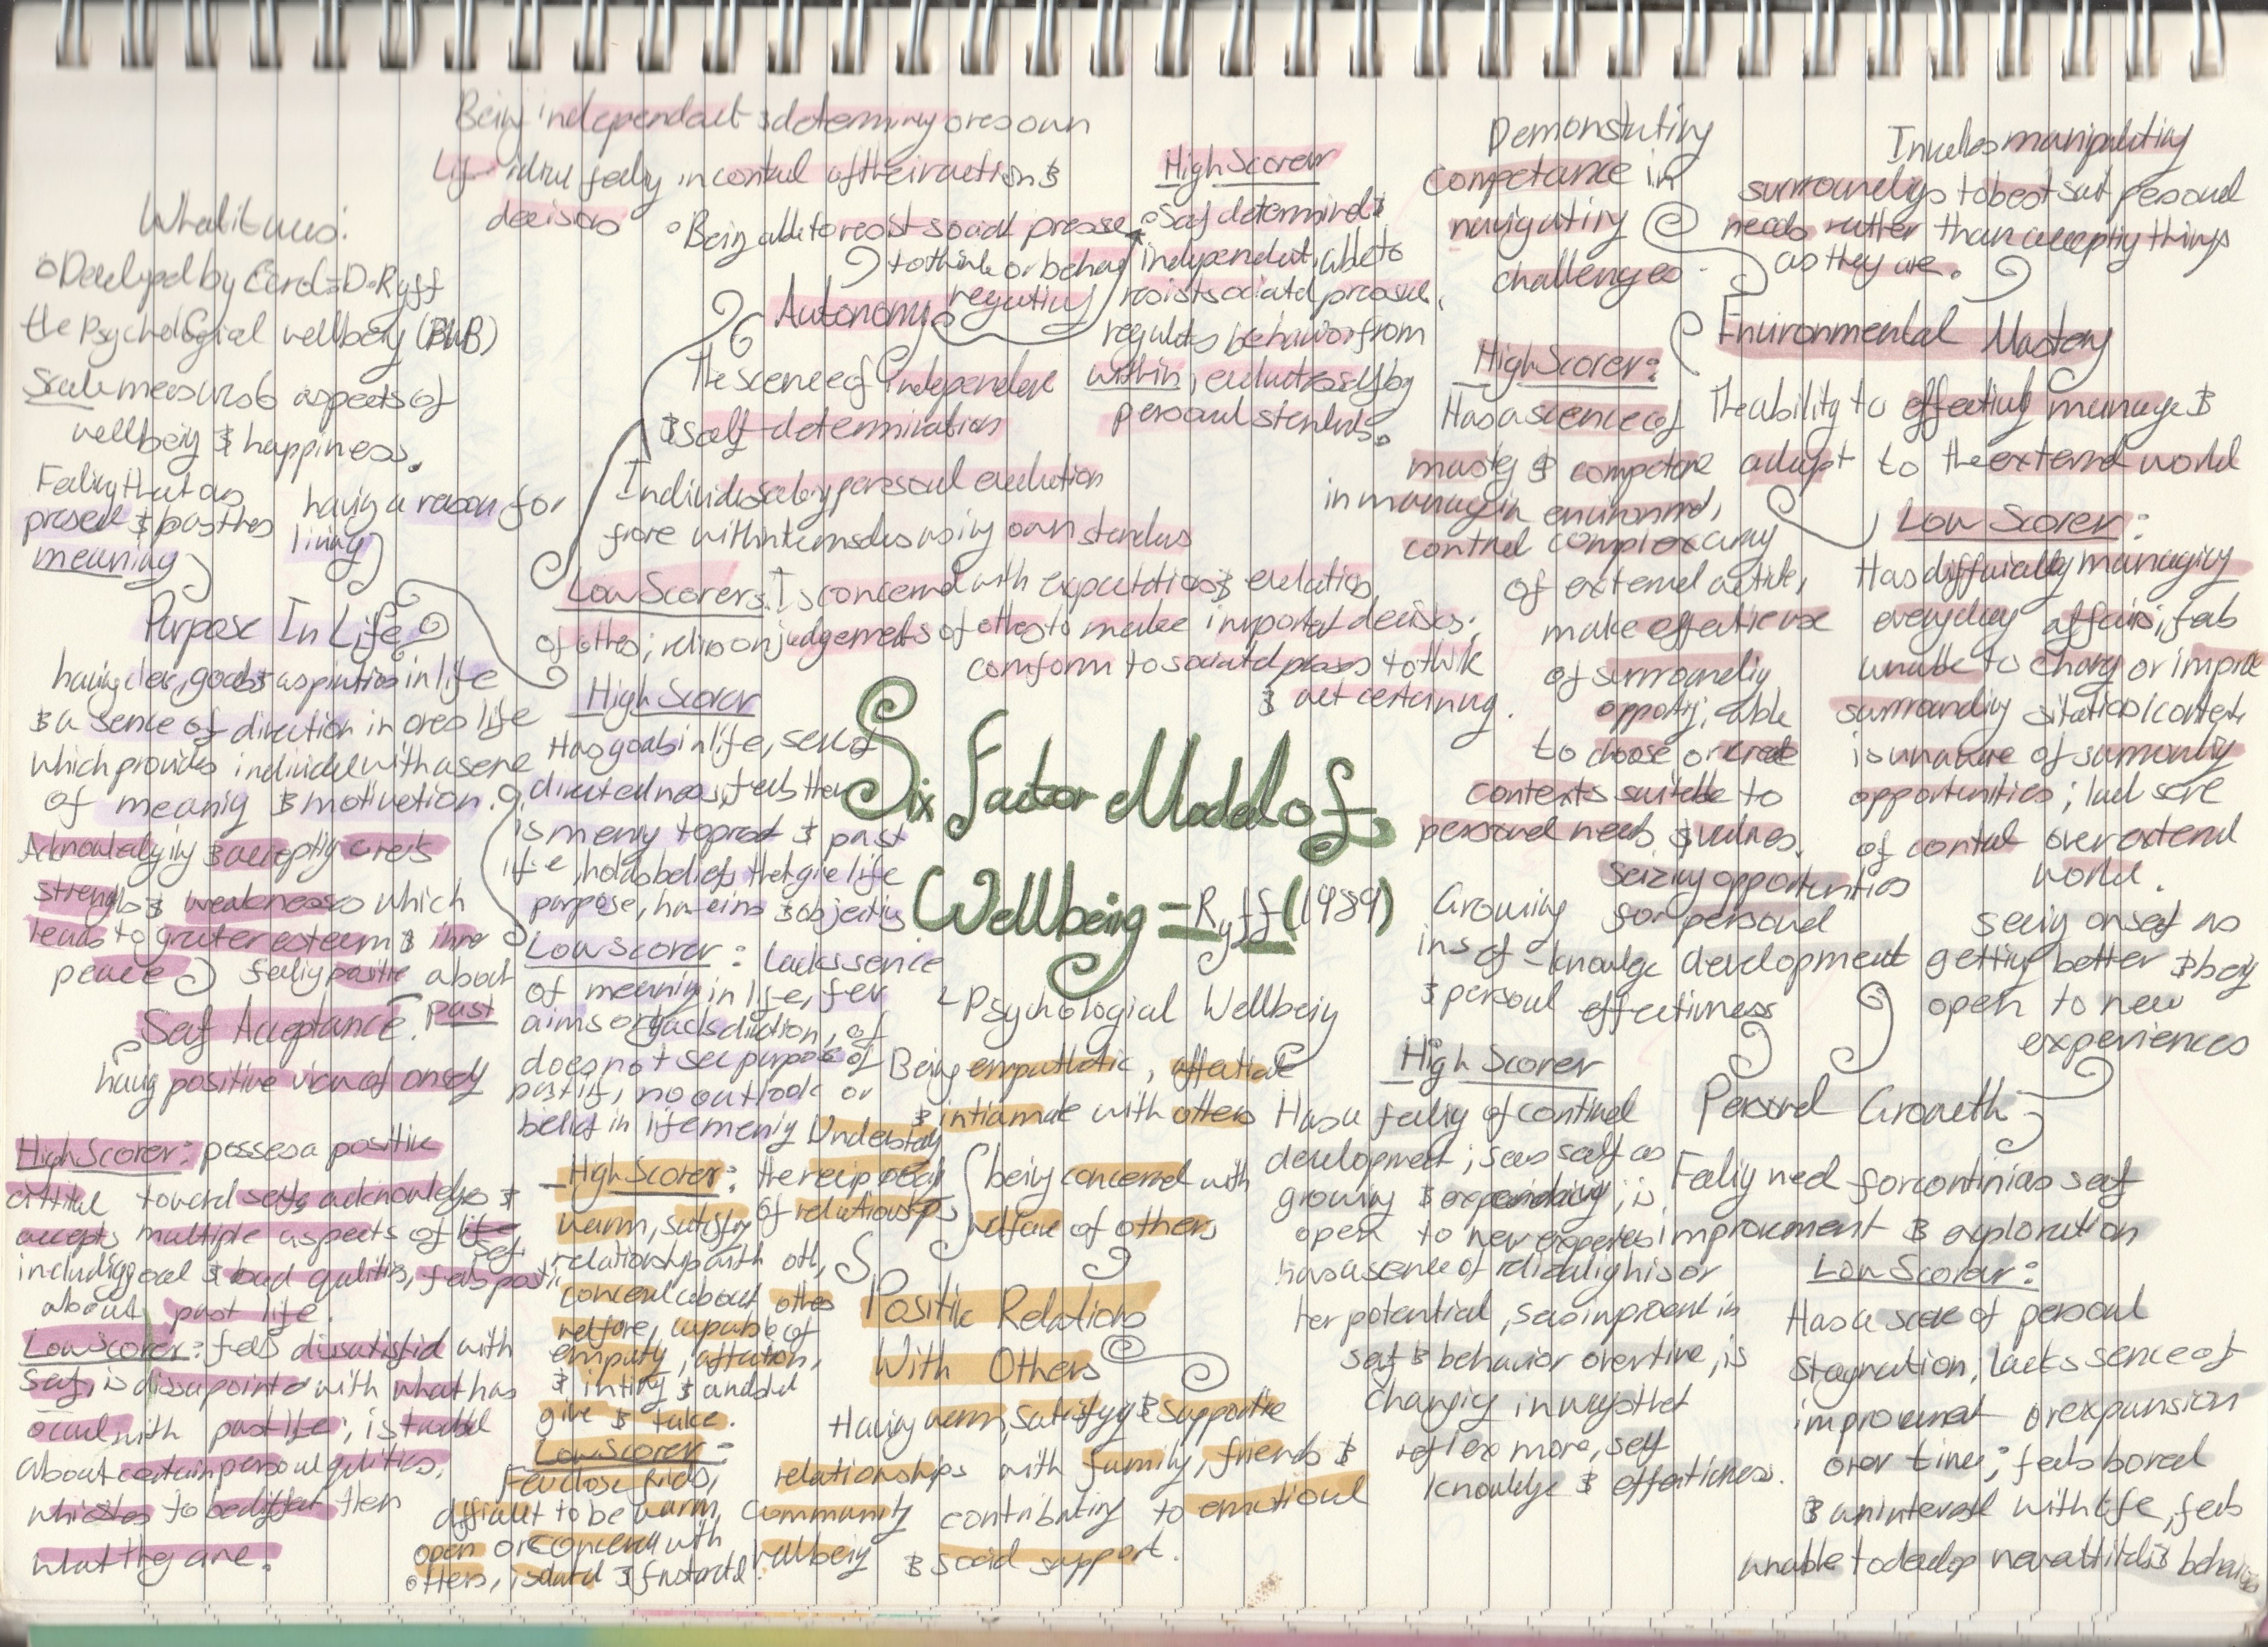 Being independent & determining ones own
life
feeling in control of their actions &
decisions
Being able to resist social pressure
to think or behave
Autonomy
regulating
The scence of independence
& self-determination
personal evaluation
using own standards
High Scorer
Self determined &
independent, able to
resist social pressure,
regulates behavior from
within, evaluates self by
personal standards.
Low Scorers: Is concerned with expectations & evaluation
of others; relies on judgements of others to make important decisions;
comform to social presses to think
& act
What it was:
Developed by Carol D. Ryff
the Psychological wellbeing
Scale measures 6 aspects of
wellbeing & happiness.
Feeling that ones
present & past has
meaning
having a reason for
living
Purpose In Life
having clear goals & aspirations in life
& a sence of direction in ones life
which provides individual with a sense
of meaning & motivation.
High Scorer
Has goals in life, sense of
directedness, feels there
is meaning to present & past
life, holds beliefs that give life
purpose, has aims & objectives
Low Scorer: Lacks sence
of meaning in life, few
aims or goals, lacks direction,
does not see purpose of
past life, no outlook or
belief in life meaning
Acknowledging & accepting ones
strengths & weaknesses which
leads to greater esteem & inner
peace
feeling positive about
past
Self Acceptance.
having positive view of oneself
High Scorer: possess a positive
attitude toward self, acknowledges &
accepts multiple aspects of
self
including good & bad qualities, feels positive
about past life.
Low Scorer: feels dissatisfied with
self, is dissapointed with what has
occured with past life; is troubled
about certain personal qualities,
whishes to be different then
what they are.
Six Factor Model of
Wellbeing = Ryff (1989)
Psychological Wellbeing
Being empathetic, affectionate
& intiamate with others
being concerned with
welfare of others
Understanding
the reciprocal
of relationships
Positive Relations
With Others
Having warm, satisfying & supportive
relationships with family, friends &
community contributing to emotional
wellbeing & social support.
High Scorer:
warm, satisfying
relationship with others,
concerned about others
welfare, capable of
empathy, affection,
& intimacy & understand
give & take.
Low Scorer:
Few close
difficult to be warm,
open or concerned with
others, isolated & frustrated.
Demonstrating
Competance in
navigating
challenges.
Involves manipulating
surroundings to best suit personal
needs rather than accepting things
as they are.
Environmental Mastery
The ability to effectively manage &
adapt to the external world
High Scorer:
Has a scence of
mastery & competence
in managing environment,
control complex array
of external activities,
make effective use
of surrounding
opportunities; able
to choose or create
contexts suitable to
personal needs & values.
Low Scorer:
Has difficulty managing
everyday affairs; feels
unable to change or improve
surrounding situations/contexts
is unaware of surrounding
opportunities; lack sence
of control over external
world.
Growing
in self-knowledge
& personal effectiveness
Seizing opportunities
for personal
development
seeing oneself as
getting better & being
open to new
experiences
Personal Growth
Feeling need for continious self
improvement & exploration
High Scorer
Has a feeling of continued
development; sees self as
growing & expanding; is
open to new experiences
has a sence of realizing his or
her potential, sees improvement in
self & behavior over time, is
changing in ways that
reflex more, self
knowledge & effectiveness.
Low Scorer:
Has a sence of personal
stagnation, lacks sence of
improvement or expansion
over time; feels bored
& uninterest with life, feels
unable to develop new attitudes & behaviors